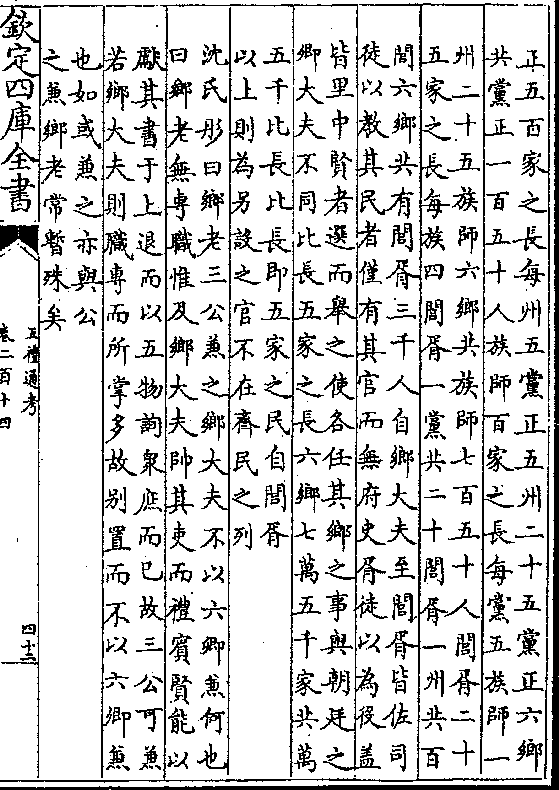 正五百家之長每州五黨正五州二十五黨正六鄉
共黨正一百五十人族師百家之長每黨五族師一
州二十五族師六鄉共族師七百五十人閭胥二十
五家之長每族四閭胥一黨共二十閭胥一州共百
閭六鄉共有閭胥三千人自鄉大夫至閭胥皆佐司
徒以教其民者僅有其官而無府史胥徒以為役蓋
皆里中賢者選而舉之使各任其鄉之事與朝廷之
鄉大夫不同比長五家之長六鄉七萬五千家共萬
五千比長比長即五家之民自閭胥
以上則為另設之官不在齊民之列
沈氏彤曰鄉老三公兼之鄉大夫不以六卿兼何也
曰鄉老無專職惟及鄉大夫帥其吏而禮賓賢能以
獻其書于上退而以五物詢衆庶而已故三公可兼
若鄉大夫則職專而所掌多故别置而不以六卿兼
也如或兼之亦與公
之兼鄉老常暫殊矣
欽定四庫全書
五禮通考
卷二百十四
四十三